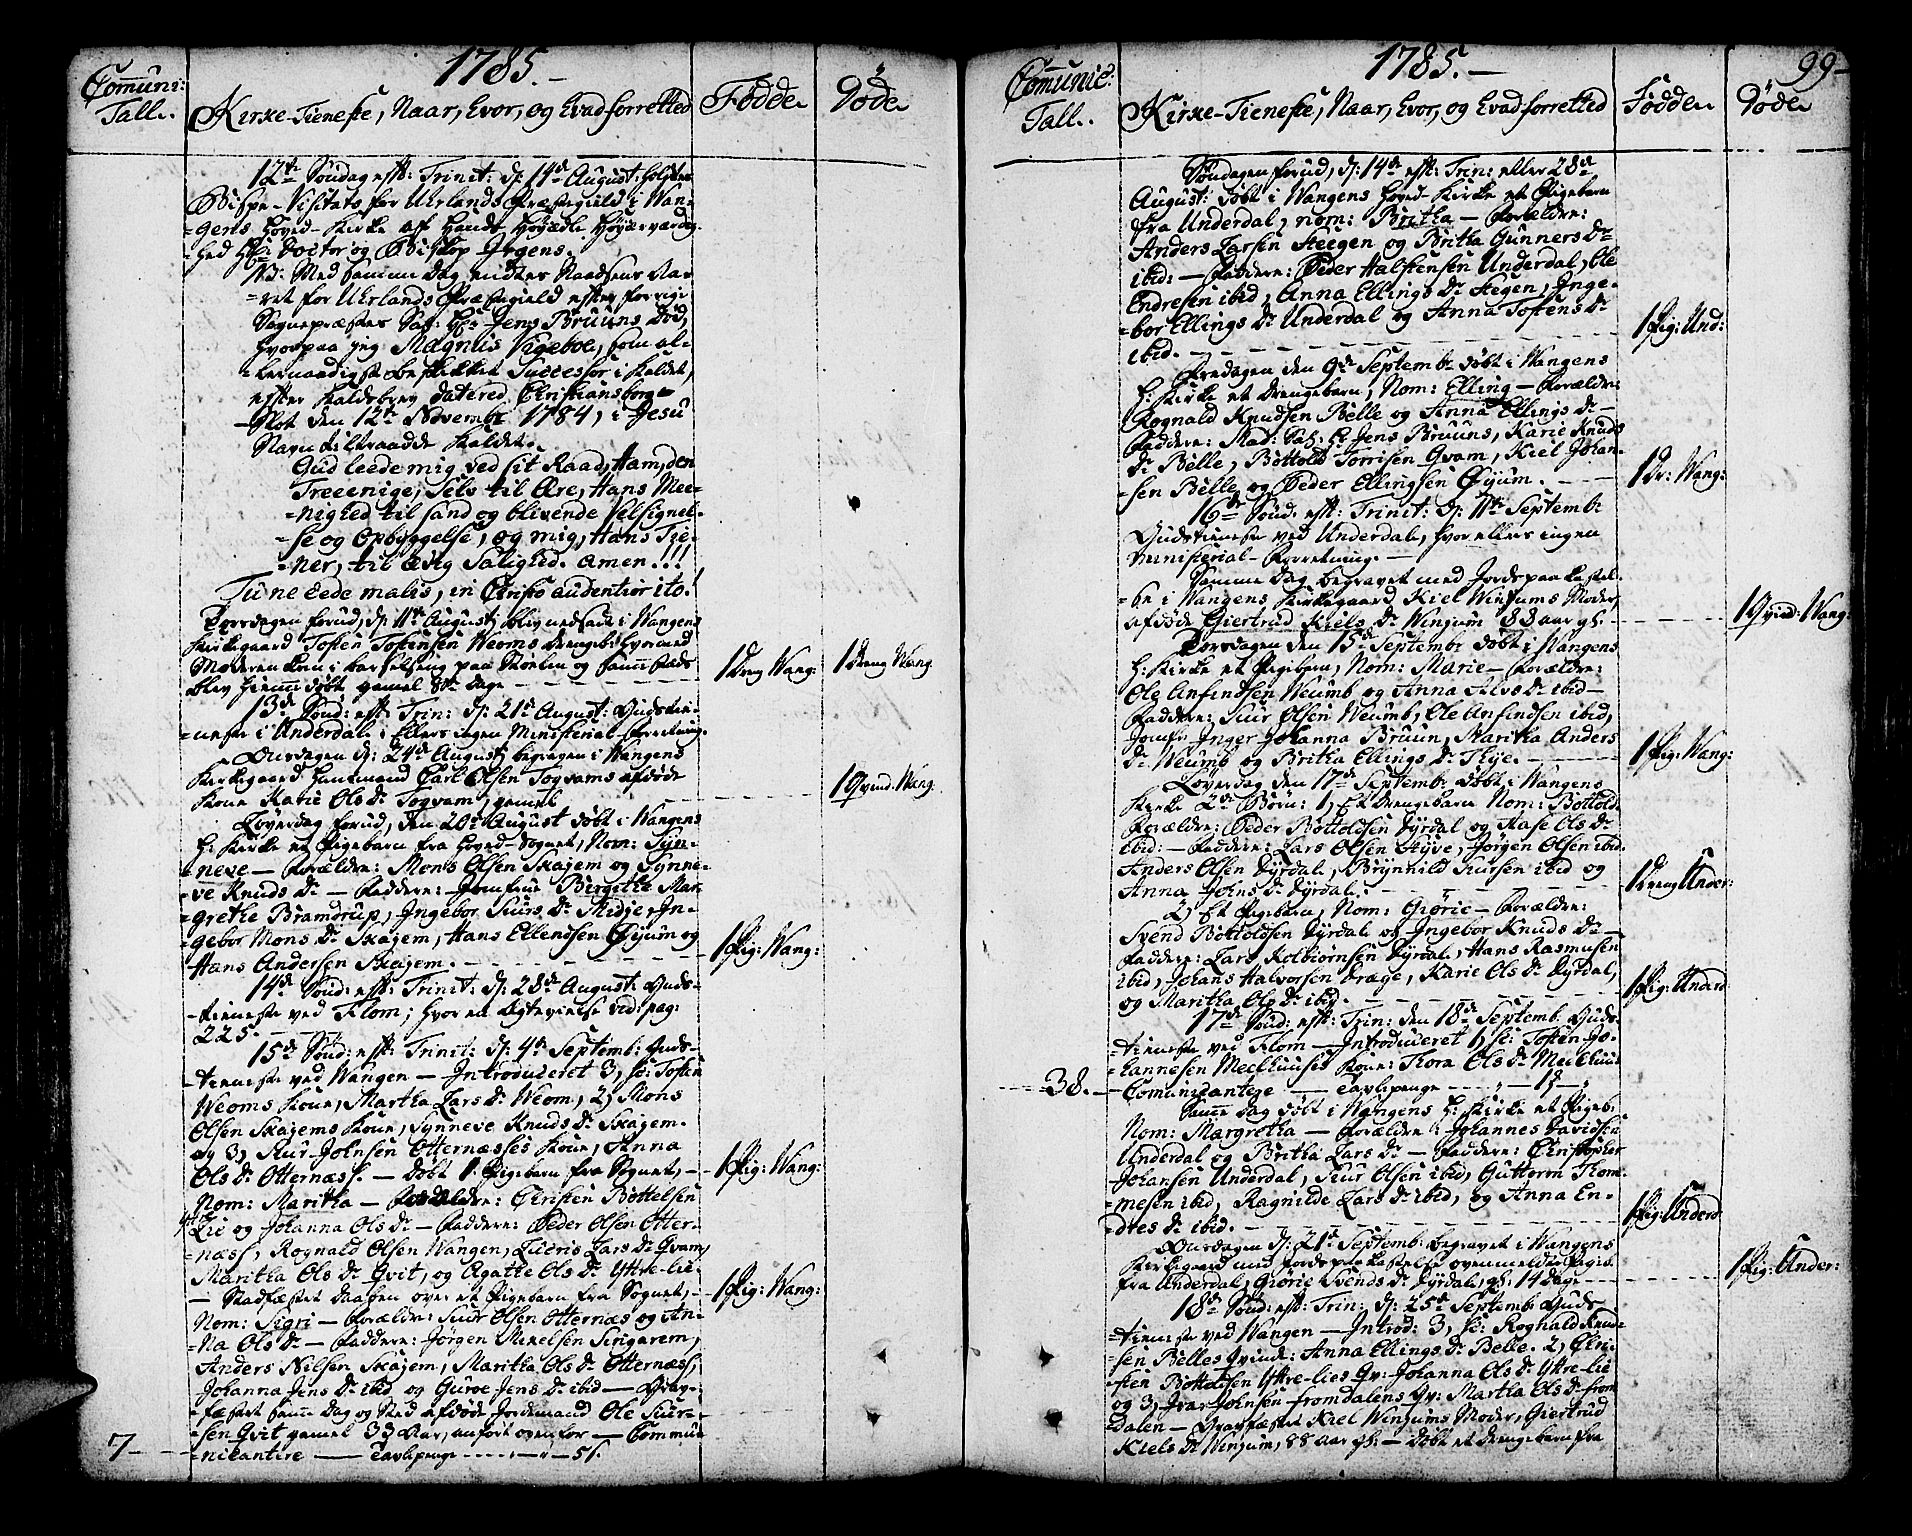 1785.
Comuni:
Tall.
Kirke-Tieneste, Naar, Hvor, og Hvad forretted
Fødde
Døde
12te Søndag eft: Trinit: d: 14de August: holdtes
Bispe-Visitats for Uhrlands Præstegield i Wan-
=gens Hoved-Kirke af Hands Høyædle Høyærværdig-
hed Hr: Doctor og Biskop Irgens.
NB: Med samme Dag endtes Naadsens Aa-
=ret for Uhrlands Præstegield efter forrige
Sognepræstes Sal: Hr: Jens Bruuns Død,
hvorpaa jeg Magnus Vigeboe, som al-
=lernaadigst beskikket Successor i Kaldet,
efter Kaldsbrev datered Christiansborg-
Slot den 12te Novembr 1784, i Jesu
Navn tiltraadde Kaldet.
Gud leede mig ved sit Raad, Ham, den
Treeenige, Selv til Ære, Hans Mee-
=nighed til sand og blivende Velsignel-
=se og Opbyggelse, og mig, Hans Tie-
=ner, til ævig Salighed. Amen!!!
Tu ne cede malis, in Christo audentior ito!
Torsdagen forud, d: 11te August, blev nedsadt i Wangens
Kirkegaard Tosten Tostensen Weoms drengeb: hvormed
Moderen kom i barselseng paa Stølen og samme steds
blev hiemme døbt gamel 8te Dage
1 Dreng Wang:
1 Dreng Wang.
13de Sønd: eft: Trin: d: 21de August: Gudstie-
=neste i Underdal: Ellers ingen Ministerial-forretning.
Onsdagen d: 24de August, begraven i Wangens
Kirkegaard Huusmand Carl Olsen Togvams afdøde
Kone Karie Ols Dr Togvam, gamel
1 Qvind: Wang.
Løverdag forud, den 20de August døbt i Wangens
H: Kirke et Pigebarn fra Hoved-Sognet, Nom: Syn-
=neve — Forældre: Mons Olsen Skajem og Synne-
=ve Knuds Dr — Faddere: Jomfrue Birgitha Mar-
grethe Bramdrup, Ingebor Siurs Dr Midje, In-
=gebor Mons Dr Skajem, Hans Ellendsen Øyum og
Hans Andersen Skajem.
1 Pig: Wang:
14de Sønd: eft: Trinit: d: 28de August: Guds-
-tieneste ved Flom; hvor en Ægtevielse vid: pag:
225.
15de Sønd: eft: Trinit: d: 4de Septemb: Guds-
-tieneste ved Wangen — Introduceret 3, se: Tosten
Weoms Kone, Martha Lars Dr Weom, 2, Mons
Olsen Skajems Kone, Synneve Knuds Dr Skajem.
og 3, Siur Johnsen Otternæsses Kone, Anna
Ols Dr Otternæss. — Døbt 1. Pigebarn fra Sognet, -
1 Pig: Wang:
Nom: Maritha — Forældre: Christen Bøttelsen
Lie og Johanna Ols Dr — Faddere: Peder Olsen Otter-
=næss, Rognald Olsen Wangen, Lucris Lars Dr Qvam,
Maritha Ols Dr Qvit, og Agathe Ols Dr Yttre-lie-
— Stadfæstet Daaben over et Pigebarn fra Sognet, -
1 Pig: Wang:
Nom: Sigri — Forældre: Siur Olsen Otternæs og An-
=na Ols Dr — Faddere: Jørgen Mikelsen Scigarem,
Anders Nilsen Skajem, Maritha Ols Dr Otternæss,
Johanna Jens Dr ibid og Guroe Jens Dr ibid — Grav-
=fæstet samme Dag og Sted afdøde Jordemand Ole Siur-
sen Qvit gamel 33 Aar, anført ovenfor — Commu-
7
=nicantere — Tavlepenge — 5s.
1785.
99
Comunic:
Tall.
Kirke-Tieneste, Naar, Hvor, og Hvad forretted
Fødde
Døde
Søndagen forud, d: 14de eft: Trin: eller 28de
August: døbt i Wangens Hoved-Kirke et Pigebarn
fra Underdal, nom: Britha — Forældre:
Anders Larsen Steegen og Britha Gunners Dr
ibid: — Faddere: Peder Halstensen Underdal, Ole
Endresen ibid, Anna Ellings Dr Stegen, Inge-
=bor Ellings Dr Underdal og Anna Tostens Dr
ibid.
1 Pig: Und:
Fredagen den 9de Septembr døbt i Wangens
H: Kirke et Drengebarn, Nom: Elling — Forældre:
Rognald Knudsen Belle og Anna Ellings Dr —
Faddere: Mad: Sal: Hr Jens Bruuns, Karie Knuds
Dr Belle, Bottold Torrisen Qvam, Kiel Johan-
=sen Belle og Peder Ellingsen Øyum.
1 Dr: Wang:
16de Sønd: eft: Trinit: d: 11te Septemb:
Gudstieneste ved Underdal, hvor ellers ingen
Ministerial-Forretning.
Samme Dag begravet med Jords paakastel-
=se i Wangens Kirkegaard Kiel Winjums Moder,
afdøde Giertrud Kiels Dr Winjum 88 aar gl.
1 Qvind: Wang:
Torsdagen den 15de Septembr døbt i Wangens
H: Kirke et Pigebarn, Nom: Marie — Forældre:
Ole Anfindsen Weumb og Anna Alvs Dr ibid —
Faddere: Siur Olsen Weumb, Ole Anfindsen ibid,
Jomfr Inger Johanna Bruun, Maritha Anders
Dr Weumb og Britha Ellings Dr Thye.
1 Pig: Wang:
Løverdag den 17de Septembr døbt i Wangens
Kirke 2de Børn: 1, Et drengebarn Nom: Bottold
Forældre: Peder Bottoldsen Dyrdal og Aase Ols Dr
ibid: — Faddere: Lars Olsen Styve, Jørgen Olsen ibid
Anders Olsen Dyrdal, Brynnild Siursen ibid og
Anna Johns Dr Dyrdal.
1 Dreng Under:
2, Et Pigebarn, Nom: Giørie — Forældre:
Svend Bottoldsen Dyrdal og Ingebor Knuds Dr —
Faddere: Lars Kolbiørnsen Dyrdal, Hans Rasmusen
ibid, Johans Halvorsen Drage, Karie Ols Dr Dyrdal,
og Maritha Ols Dr ibid.
1 Pig: Underd
17de Sønd: eft: Trin: den 18de Septemb: Guds-
=tieneste ved Flom — Introduceret 1, se: Tosten Jo-
hannesen Meelhuuses Kone: Thora Ols Dr Meelhuus
38.
Comunicantere — Tavlepenge — 1s
Samme Dag døbt i Wangens H: Kirke et Pigeb:
Nom: Margretha — Forældre: Johannes Davidsen
Underdal og Britha Lars Dr — Faddere: Christopher
Johansen Underdal, Siur Olsen ibid, Guttorm Thom-
mesen ibid, Ragnilde Lars Dr ibid, og Anna En-
dres Dr ibid.
1 Pig: Underd
Onsdagen d: 21de Septemb: begravet i Wangens
Kirkegaard med Jords paakastelse ovenmeldte Pigeb:
fra Underdal, Giørie Svends Dr Dyrdal, gl. 14 Dage
1 Pig: Under:
18de Sønd: eft: Trin: d: 25de Septemb: Guds-
tieneste ved Wangen — Introd: 3, se: Rognald Knud-
=sen Belles Qvinde: Anna Ellings Dr Belle. 2, Chri-
=sten Bottelsen Yttre-lies Qv: Johanna Ols Dr Yttre-lie
og 3, Ivar Johnsen Fromdalens Qv: Martha Ols Dr from-
Dalen — Gravfæstet Kiel Winjums Moder, Giertrud
Kiels Dr Winjum, 88 aar gl: — Døbt et drengebarn fra